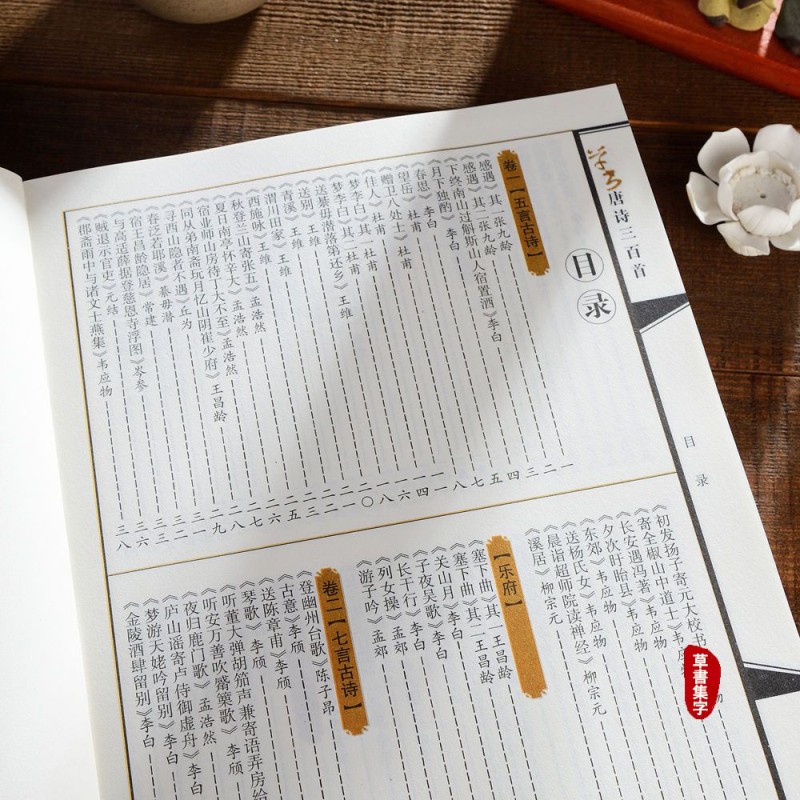 草书唐诗三百首
目录
目录
卷一【五言古诗】
《感遇 其一》张九龄
《感遇 其二》张九龄
《下终南山过斛斯山人宿置酒》李白
《月下独酌》李白
《春思》李白
《望岳》杜甫
《赠卫八处士》杜甫
《佳人》杜甫
《梦李白 其一》杜甫
《梦李白 其二》杜甫
《送綦毋潜落第还乡》王维
《送别》王维
《青溪》王维
《渭川田家》王维
《西施咏》王维
《秋登兰山寄张五》孟浩然
《夏日南亭怀辛大》孟浩然
《宿业师山房待丁大不至》孟浩然
《同从弟南斋玩月忆山阴崔少府》王昌龄
《寻西山隐者不遇》丘为
《春泛若耶溪》綦毋潜
《宿王昌龄隐居》常建
《与高适薛据登慈恩寺浮图》岑参
《贼退示官吏》元结
《郡斋雨中与诸文士燕集》韦应物
《初发扬子寄元大校书
《寄全椒山中道士》韦应物
《长安遇冯著》韦应物
《夕次盱眙县》韦应物
《东郊》韦应物
《送杨氏女》韦应物
《晨诣超师院读禅经》柳宗元
《溪居》柳宗元
【乐府】
《塞下曲 其一》王昌龄
《塞下曲 其二》王昌龄
《关山月》李白
《子夜吴歌》李白
《长干行》李白
《列女操》孟郊
《游子吟》孟郊
卷二【七言古诗】
《登幽州台歌》陈子昂
《古意》李颀
《送陈章甫》李颀
《琴歌》李颀
《听董大弹胡笳声 兼寄语弄房给
《听安万善吹觱篥歌》李颀
《夜归鹿门歌》孟浩然
《庐山谣寄卢侍御虚舟》李白
《梦游天姥吟留别》李白
《金陵酒肆留别》李白
草書集字